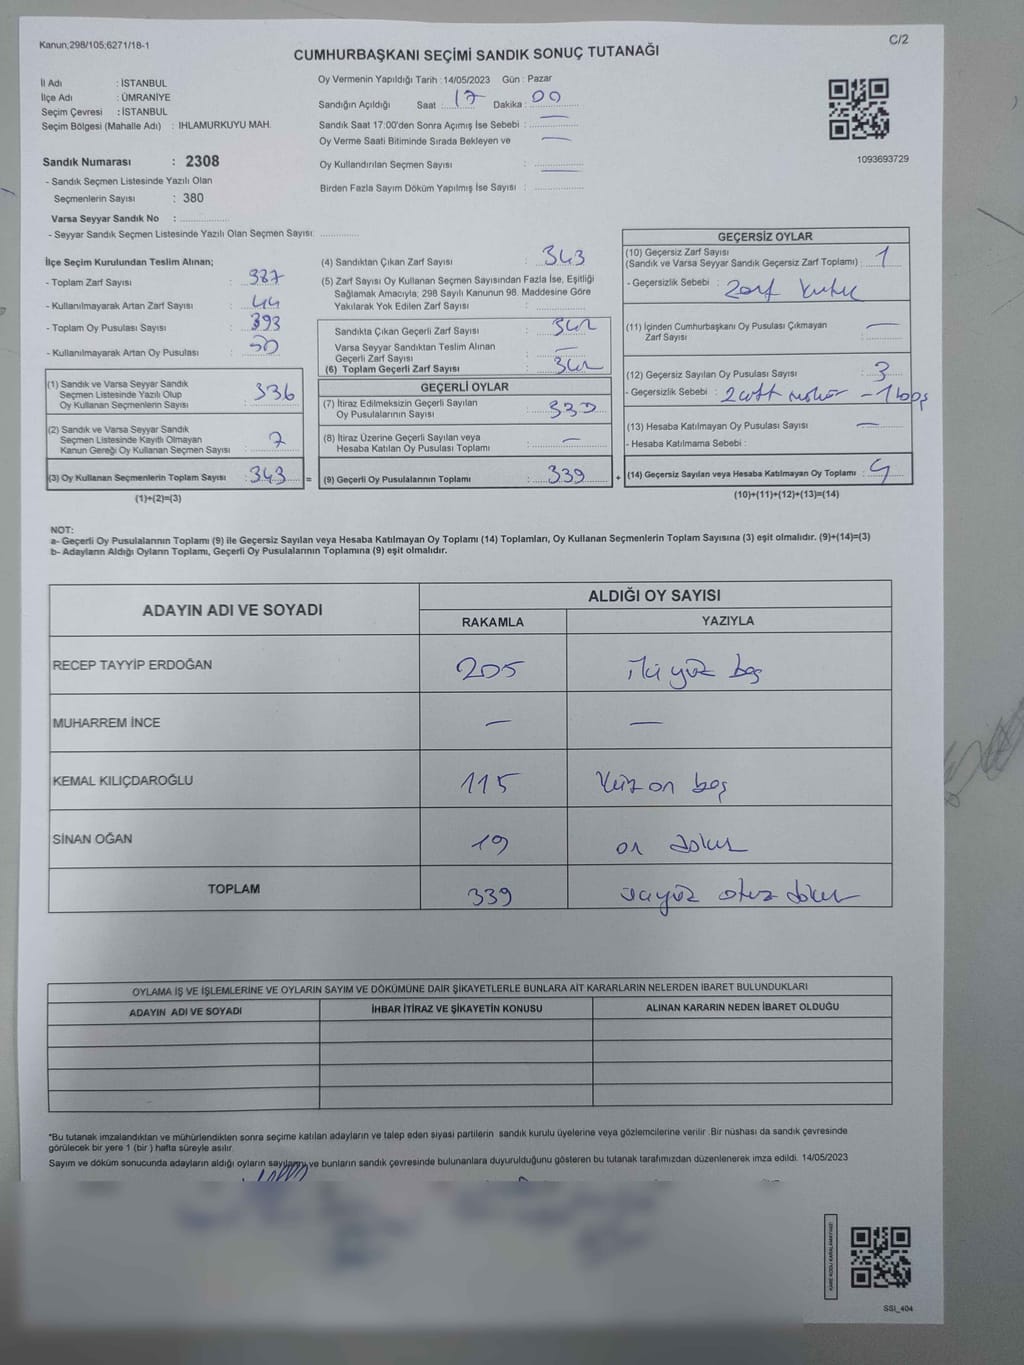 Kanun;298/105;6271/18-1
C/2
CUMHURBAŞKANI SEÇİMİ SANDIK SONUÇ TUTANAĞI
İl Adı : İSTANBUL
İlçe Adı : ÜMRANİYE
Seçim Çevresi : İSTANBUL
Seçim Bölgesi (Mahalle Adı) : IHLAMURKUYU MAH.
Sandık Numarası : 2308
- Sandık Seçmen Listesinde Yazılı Olan
Seçmenlerin Sayısı : 380
Varsa Seyyar Sandık No :
- Seyyar Sandık Seçmen Listesinde Yazılı Olan Seçmen Sayısı:
Oy Vermenin Yapıldığı Tarih : 14/05/2023 Gün : Pazar
Sandığın Açıldığı Saat : 17 Dakika : 00
Sandık Saat 17:00'den Sonra Açımış İse Sebebi : —
Oy Verme Saati Bitiminde Sırada Bekleyen ve —
Oy Kullandırılan Seçmen Sayısı : —
Birden Fazla Sayım Döküm Yapılmış İse Sayısı :
1093693729
İlçe Seçim Kurulundan Teslim Alınan;
- Toplam Zarf Sayısı : 387
- Kullanılmayarak Artan Zarf Sayısı : 44
- Toplam Oy Pusulası Sayısı : 393
- Kullanılmayarak Artan Oy Pusulası : 50
(1) Sandık ve Varsa Seyyar Sandık
Seçmen Listesinde Yazılı Olup
Oy Kullanan Seçmenlerin Sayısı : 336
(2) Sandık ve Varsa Seyyar Sandık
Seçmen Listesinde Kayıtlı Olmayan
Kanun Gereği Oy Kullanan Seçmen Sayısı : 7
(3) Oy Kullanan Seçmenlerin Toplam Sayısı : 343 =
(1)+(2)=(3)
(4) Sandıktan Çıkan Zarf Sayısı : 343
(5) Zarf Sayısı Oy Kullanan Seçmen Sayısından Fazla İse, Eşitliği
Sağlamak Amacıyla; 298 Sayılı Kanunun 98. Maddesine Göre
Yakılarak Yok Edilen Zarf Sayısı :
Sandıkta Çıkan Geçerli Zarf Sayısı : 342
Varsa Seyyar Sandıktan Teslim Alınan
Geçerli Zarf Sayısı : —
(6) Toplam Geçerli Zarf Sayısı : 342
GEÇERLİ OYLAR
(7) İtiraz Edilmeksizin Geçerli Sayılan
Oy Pusulalarının Sayısı : 339
(8) İtiraz Üzerine Geçerli Sayılan veya
Hesaba Katılan Oy Pusulası Toplamı : —
(9) Geçerli Oy Pusulalarının Toplamı : 339 +
GEÇERSİZ OYLAR
(10) Geçersiz Zarf Sayısı
(Sandık ve Varsa Seyyar Sandık Geçersiz Zarf Toplamı) : 1
- Geçersizlik Sebebi : Zarf
(11) İçinden Cumhurbaşkanı Oy Pusulası Çıkmayan
Zarf Sayısı : —
(12) Geçersiz Sayılan Oy Pusulası Sayısı : 3
- Geçersizlik Sebebi : 2 çift mühür - 1 boş
(13) Hesaba Katılmayan Oy Pusulası Sayısı : —
- Hesaba Katılmama Sebebi :
(14) Geçersiz Sayılan veya Hesaba Katılmayan Oy Toplamı : 4
(10)+(11)+(12)+(13)=(14)
NOT:
a- Geçerli Oy Pusulalarının Toplamı (9) ile Geçersiz Sayılan veya Hesaba Katılmayan Oy Toplamı (14) Toplamları, Oy Kullanan Seçmenlerin Toplam Sayısına (3) eşit olmalıdır. (9)+(14)=(3)
b- Adayların Aldığı Oyların Toplamı, Geçerli Oy Pusulalarının Toplamına (9) eşit olmalıdır.
ADAYIN ADI VE SOYADI
ALDIĞI OY SAYISI
RAKAMLA YAZIYLA
RECEP TAYYİP ERDOĞAN 205 iki yüz beş
MUHARREM İNCE — —
KEMAL KILIÇDAROĞLU 115 Yüz on beş
SİNAN OĞAN 19 on dokuz
TOPLAM 339 üçyüz otuz dokuz
OYLAMA İŞ VE İŞLEMLERİNE VE OYLARIN SAYIM VE DÖKÜMÜNE DAİR ŞİKAYETLERLE BUNLARA AİT KARARLARIN NELERDEN İBARET BULUNDUKLARI
ADAYIN ADI VE SOYADI İHBAR İTİRAZ VE ŞİKAYETİN KONUSU ALINAN KARARIN NEDEN İBARET OLDUĞU
*Bu tutanak imzalandıktan ve mühürlendikten sonra seçime katılan adayların ve talep eden siyasi partilerin sandık kurulu üyelerine veya gözlemcilerine verilir .Bir nüshası da sandık çevresinde
görülecek bir yere 1 (bir ) hafta süreyle asılır.
Sayım ve döküm sonucunda adayların aldığı oyların sayılarını ve bunların sandık çevresinde bulunanlara duyurulduğunu gösteren bu tutanak tarafımızdan düzenlenerek imza edildi. 14/05/2023
SSI_404